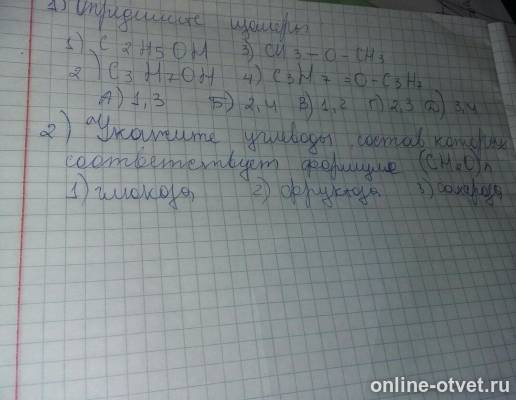 1) Определите изомеры
1) C2H5OH 3) CH3-O-CH3
2) C3H7OH 4) C3H7=O-C3H7
А) 1,3 Б) 2,4 В) 1,2 Г) 2,3 Д) 3,4
2) Укажите углеводы состав которых
соответствует формуле (CH2O)n
1) глюкоза 2) фруктоза 3) сахароза
online-otvet.ru